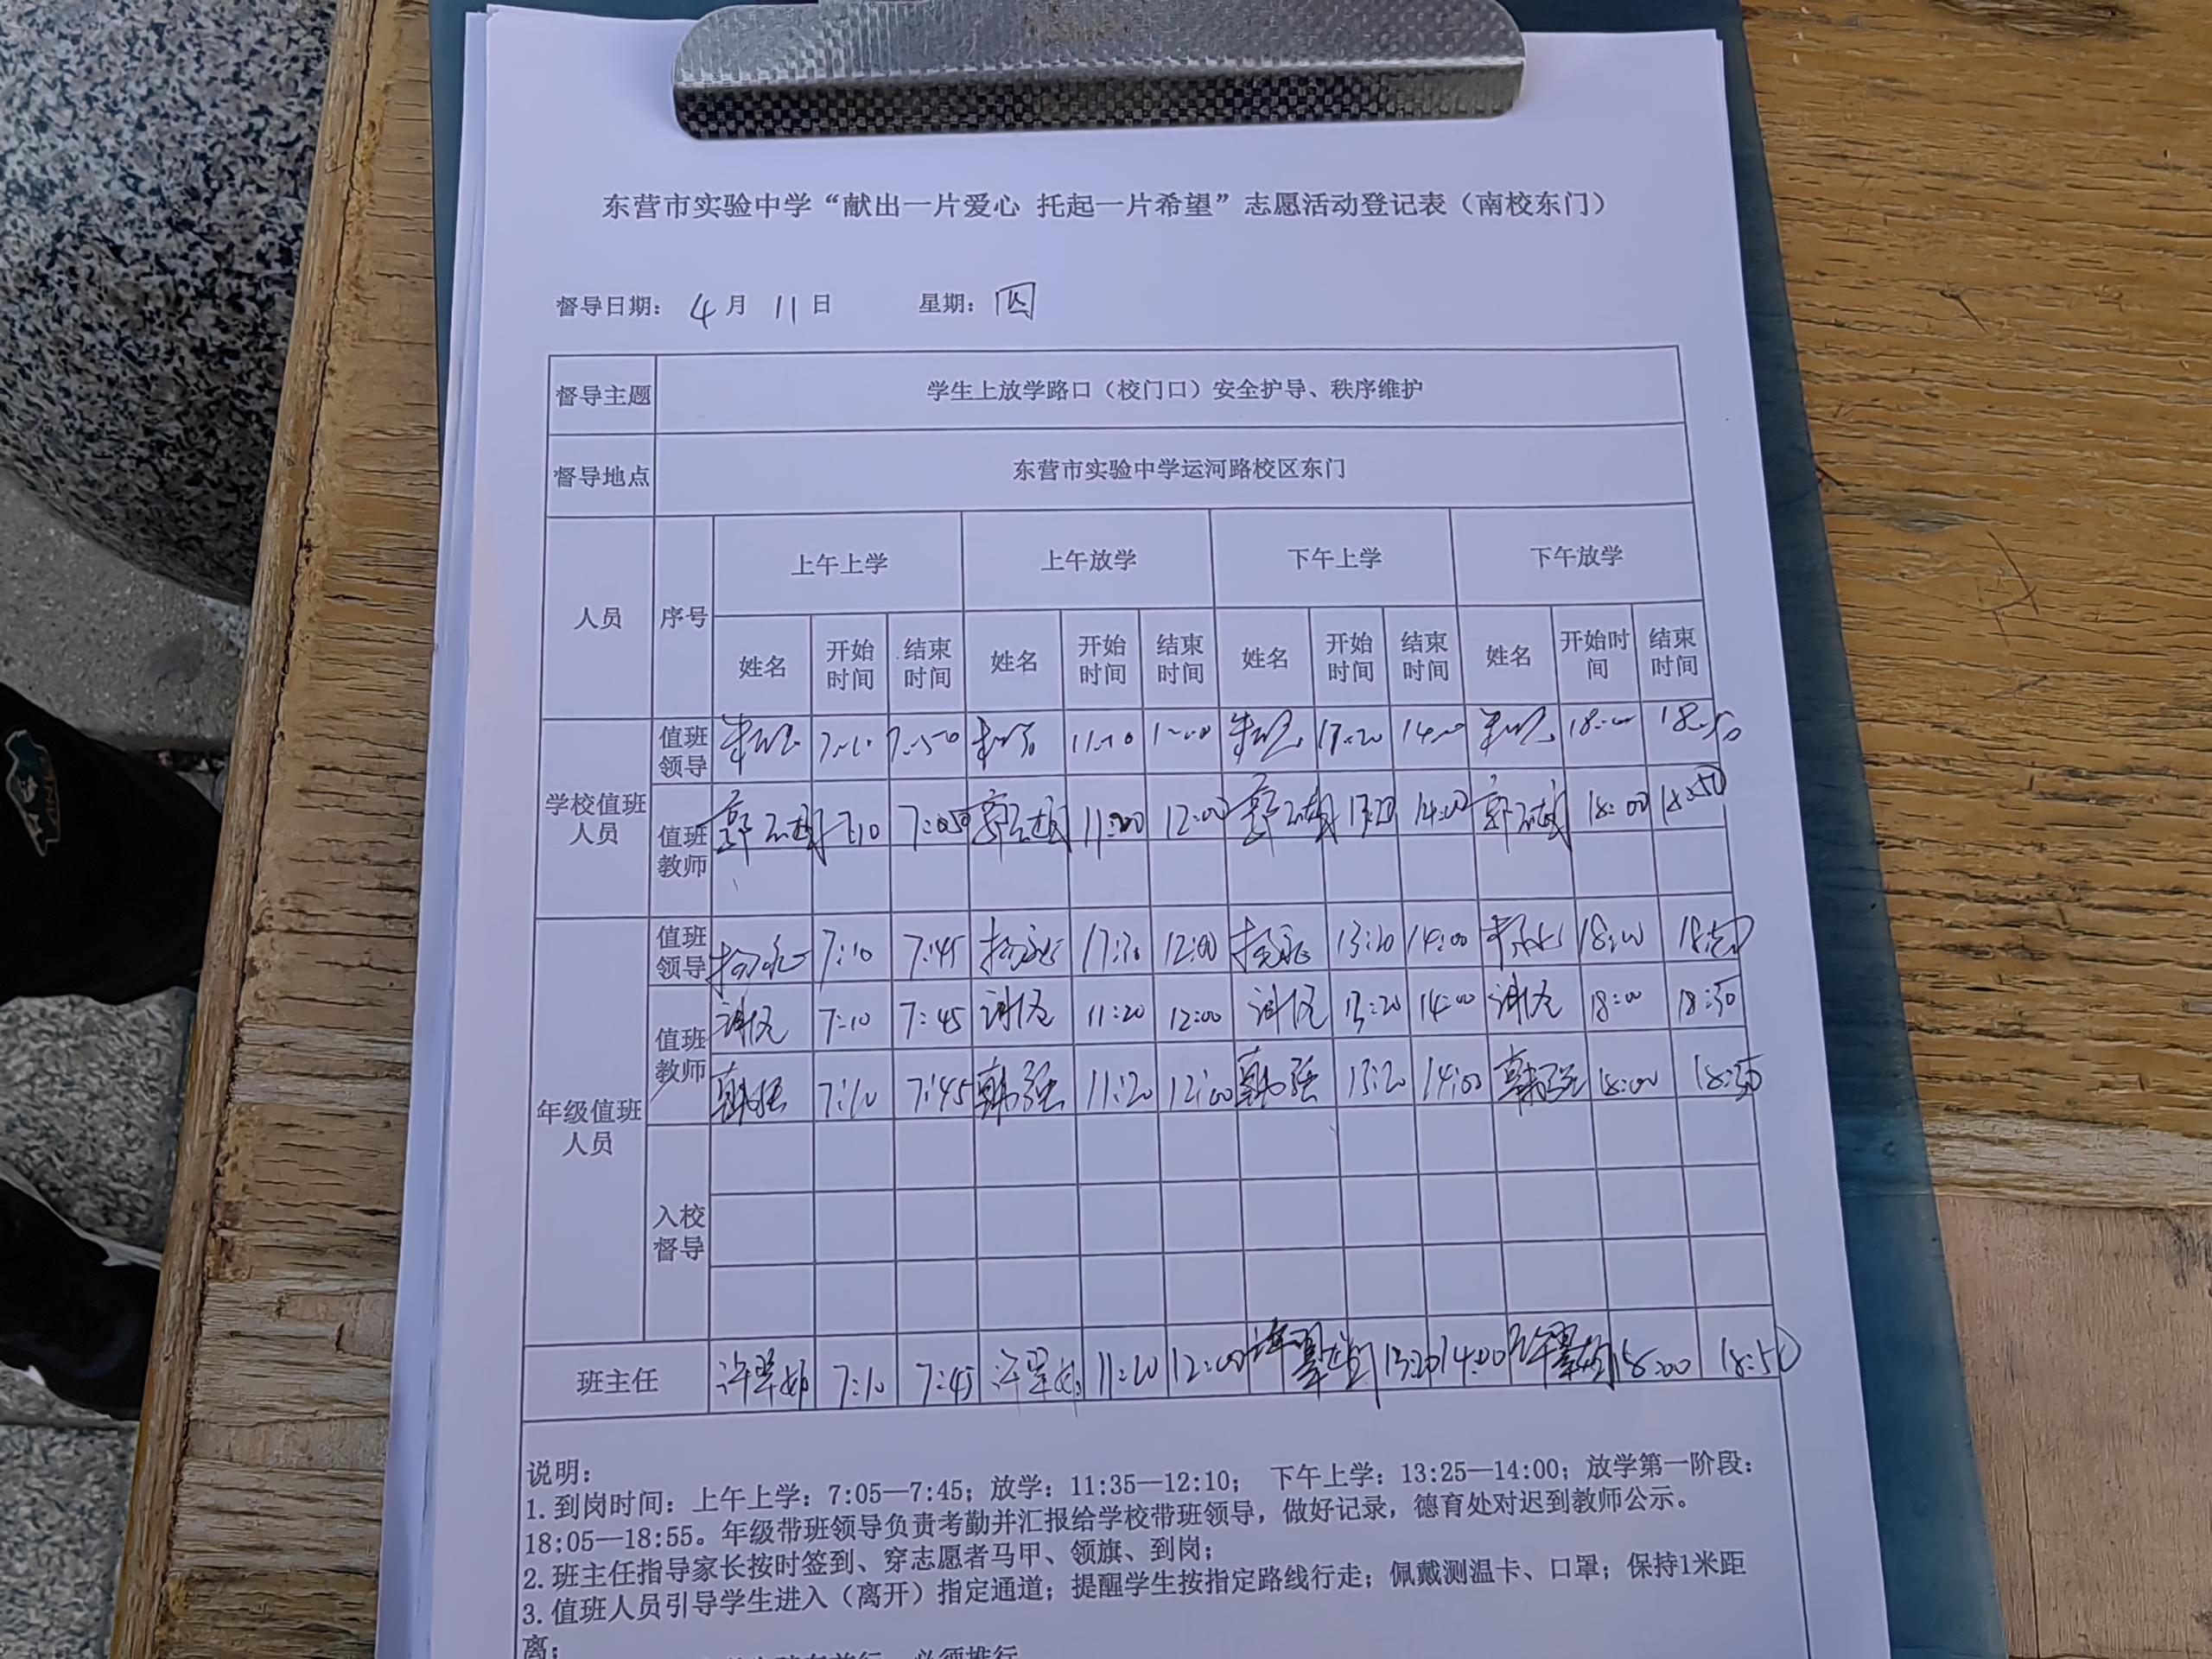 东营市实验中学“献出一片爱心 托起一片希望”志愿活动登记表（南校东门）
督导日期： 4 月 11 日 星期： 四
督导主题 学生上放学路口（校门口）安全护导、秩序维护
督导地点 东营市实验中学运河路校区东门
人员 序号 上午上学 上午放学 下午上学 下午放学
姓名 开始时间 结束时间 姓名 开始时间 结束时间 姓名 开始时间 结束时间 姓名 开始时间 结束时间
学校值班人员
值班领导 18:50
值班教师 7:10 7:50 11:20 12:00 13:20 14:00 18:00 18:50
年级值班人员
值班领导 7:10 7:45 12:00 13:20 14:00 18:00 18:50
值班教师 7:10 7:45 11:20 12:00 13:20 14:00 18:00 18:50
韩强 7:10 7:45 韩强 11:20 12:00 韩强 13:20 14:00 韩强 18:00 18:50
入校督导
班主任 许翠娟 7:10 7:45 许翠娟 11:20 12:00 许翠娟 13:20 14:00 许翠娟 18:00 18:50
说明：
1.到岗时间：上午上学：7:05—7:45；放学：11:35—12:10； 下午上学：13:25—14:00；放学第一阶段：
18:05—18:55。年级带班领导负责考勤并汇报给学校带班领导，做好记录，德育处对迟到教师公示。
2.班主任指导家长按时签到、穿志愿者马甲、领旗、到岗；
3.值班人员引导学生进入（离开）指定通道；提醒学生按指定路线行走；佩戴测温卡、口罩；保持1米距
离；
必须推行